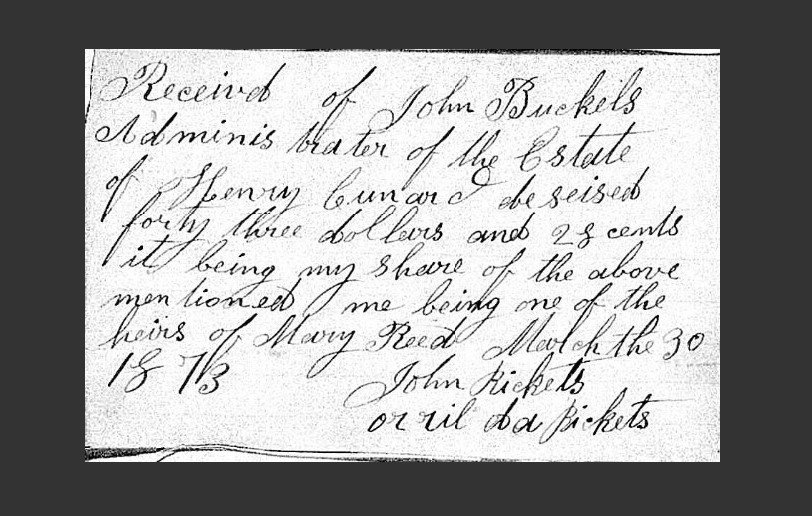 Receivd of John Buckels
Adminis trater of the Estate
of Henry Cunard deseised
forty three dollars and 28 cents
it being my share of the above
mentioned me being one of the
heirs of Mary Reed March the 30
1873
John Rickets
orril da Rickets